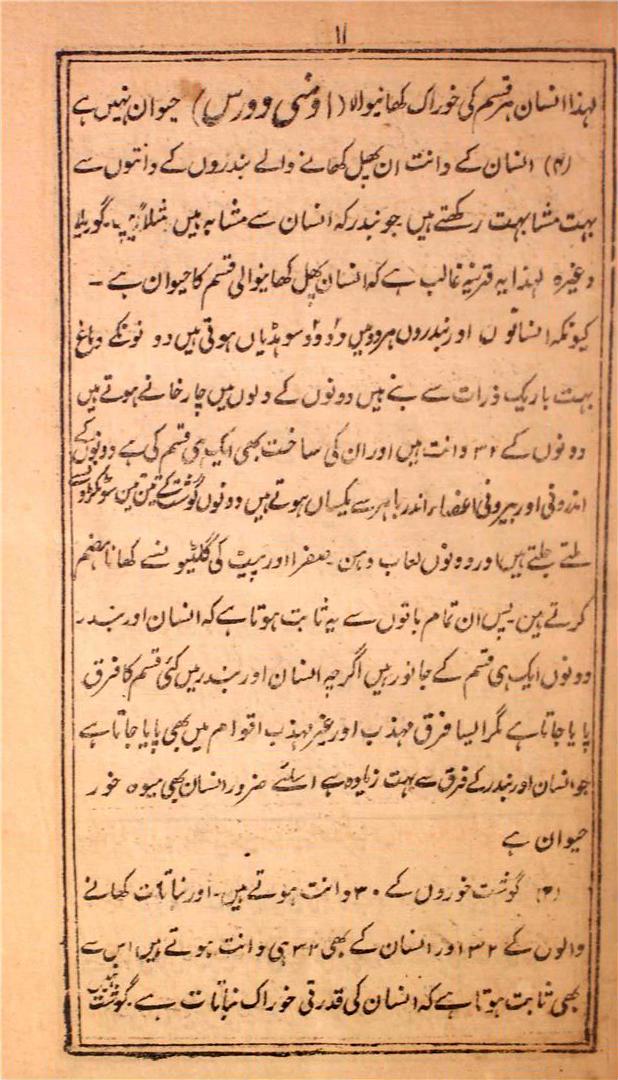 ۱۱
لہذا انسان ہر قسم کی خوراک کھانیوالا (اومنی وورس) حیوان نہیں ہے
(۴) انسان کے دانت ان پھل کھانے والے بندروں کے دانتوں سے
بہت مشابہت رکھتے ہیں جو بندر کہ انسان سے مشابہ ہیں مثلاً گوریلا
وغیرہ لہذا یہ قرینہ غالب ہے کہ انسان پھل کھانیوالی قسم کا حیوان ہے -
کیونکہ انسانوں اور بندروں ہردو میں دو دو سو ہڈیاں ہوتی ہیں دونونکے دماغ
بہت باریک ذرات سے بنے ہیں دونوں کے دلوں میں چار خانے ہوتے ہیں
دونوں کے ۳۲ دانت ہیں اور ان کی ساخت بھی ایک ہی قسم کی ہے دونوں کے
اندرونی اور بیرونی اعضاء اندر باہر سے یکساں ہوتے ہیں دونوں گوشت کے تین سو
ملتے جلتے ہیں اور دونوں لعاب دہن صفرا اور پیٹ کی گلٹیو نسے کھانا ہضم
کرتے ہیں پس ان تمام باتوں سے یہ ثابت ہوتا ہے کہ انسان اور بندر
دونوں ایک ہی قسم کے جانور ہیں اگرچہ انسان اور بندر میں کئی قسم کا فرق
پایا جاتا ہے مگر ایسا فرق مہذب اور غیر مہذب اقوام میں بھی پایا جاتا ہے
جو انسان اور بندر کے فرق سے بہت زیادہ ہے اسلئے ضرور انسان بھی میوہ خور
حیوان ہے
گوشت خوروں کے ۳۰ دانت ہوتے ہیں - اور نباتات کھانے
والوں کے ۳۲ اور انسان کے بھی ۳۲ ہی دانت ہوتے ہیں اس سے
بھی ثابت ہوتا ہے کہ انسان کی قدرتی خوراک نباتات ہے گوشت نہیں